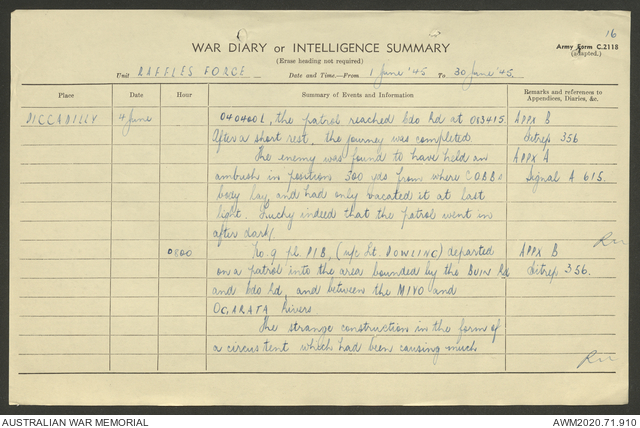 16
WAR DIARY or INTELLIGENCE SUMMARY
Army Form C.2118
(adapted.)
(Erase heading not required)
Unit RAFFLES FORCE Date and Time.—From 1 June '45 To 30 June '45.
Place Date Hour Summary of Events and Information Remarks and references to
Appendices, Diaries, &c.
PICCADILLY 4 June 040400L, the patrol reached Cdo Rd at 013415. APPX B
After a short rest, the journey was completed. Sitrep 356
The enemy was found to have held an APPX A
ambush in position 300 yds from where COBBs Signal A 615.
body lay, and had only vacated it at last
light. Lucky indeed that the patrol went in
after dark!
0800 No. 9 pl. PIB, (o/c Lt. DOWLING) departed APPX B
on a patrol into the area bounded by the BUIN Rd Sitrep 356.
and Cdo Rd, and between the MIVO and
OGARATA Rivers
The strange construction in the form of
a circus tent which had been causing much
AUSTRALIAN WAR MEMORIAL AWM2020.71.910